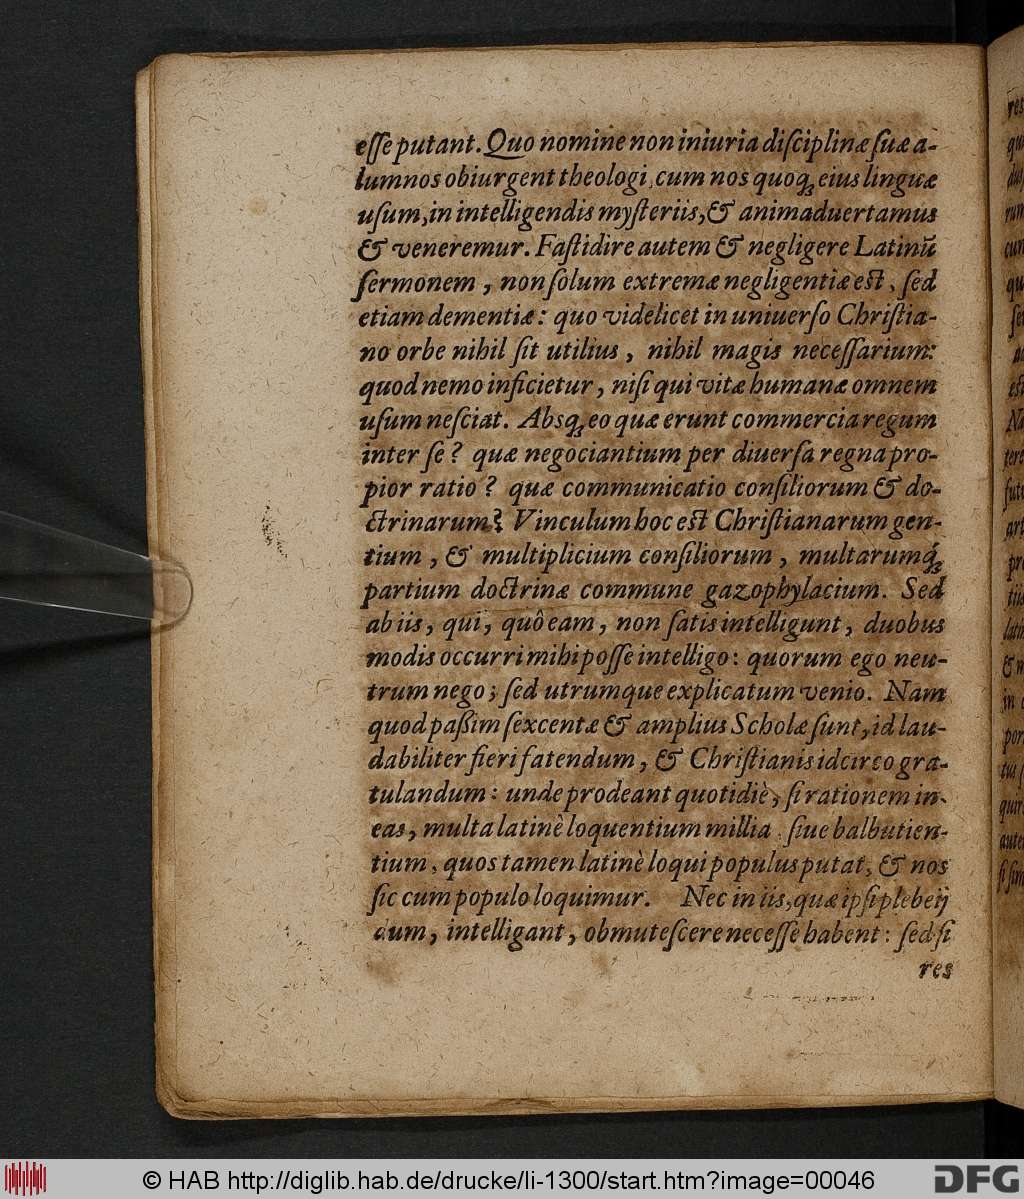 eſſe putant. Quo nomine non iniuria diſciplinæ ſuæ a-
lumnos obiurgent theologi, cum nos quoq; eius linguæ
uſum, in intelligendis myſteriis, & animaduertamus
& veneremur. Faſtidire autem & negligere Latinū
ſermonem, non ſolum extremæ negligentiæ eſt, ſed
etiam dementiæ: quo videlicet in uniuerſo Chriſtia-
no orbe nihil ſit utilius, nihil magis neceſſarium:
quod nemo inficietur, niſi qui vitæ humanæ omnem
uſum neſciat. Absq; eo quæ erunt commercia regum
inter ſe? quæ negociantium per diuerſa regna pro-
pior ratio? quæ communicatio conſiliorum & do-
ctrinarum? Vinculum hoc eſt Chriſtianarum gen-
tium, & multiplicium conſiliorum, multarumq́;
partium doctrinæ commune gazophylacium. Sed
ab iis, qui, quô eam, non ſatis intelligunt, duobus
modis occurri mihi poſſe intelligo: quorum ego neu-
trum nego; ſed utrumque explicatum venio. Nam
quod paßim ſexcentæ & amplius Scholæ ſunt, id lau-
dabiliter fieri fatendum, & Chriſtianis idcirco gra-
tulandum: unde prodeant quotidiè, ſi rationem in-
eas, multa latinè loquentium millia, ſiue balbutien-
tium, quos tamen latinè loqui populus putat, & nos
ſic cum populo loquimur. Nec in iis, quæ ipſi plebeij
dum, intelligant, obmuteſcere neceſſe habent: ſed ſi
res
res
© HAB http://diglib.hab.de/drucke/li-1300/start.htm?image=00046
DFG